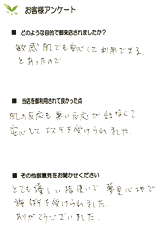 お客様アンケート
■ どのような目的で御来店されましたか?
敏感肌でも安心して利用できる
とあったので
■ 当店を御利用されて良かった点
肌の反応も悪い反応が出なくて
安心してエステを受けられました
■ その他御意見をお聞かせください
とても優しい指使いで 夢見心地で
施術を受けられました。
ありがとうございました。